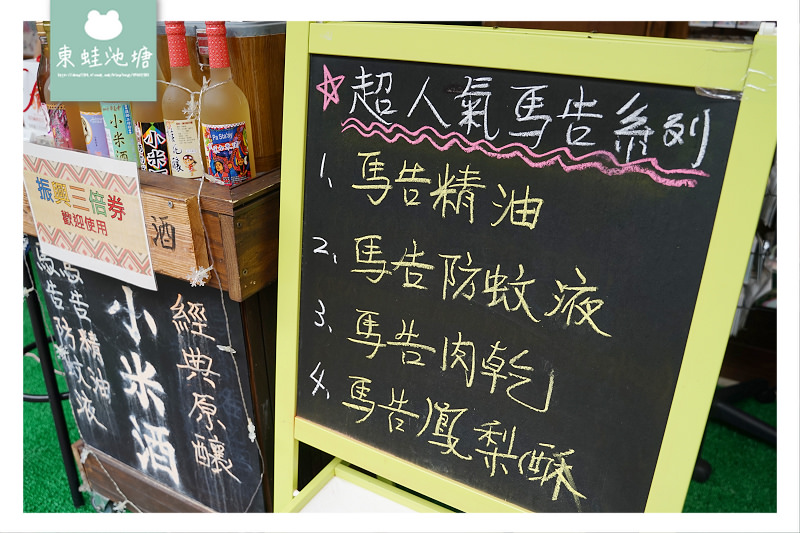 東蛙池塘
小米酒
Pa Stai'ay
小米
振興三倍券
歡迎使用
酒
經典原釀
小米酒
馬告精油
馬告防蚊液
超人氣馬告系列
1. 馬告精油
2. 馬告防蚊液
3. 馬告肉乾
4. 馬告鳳梨酥